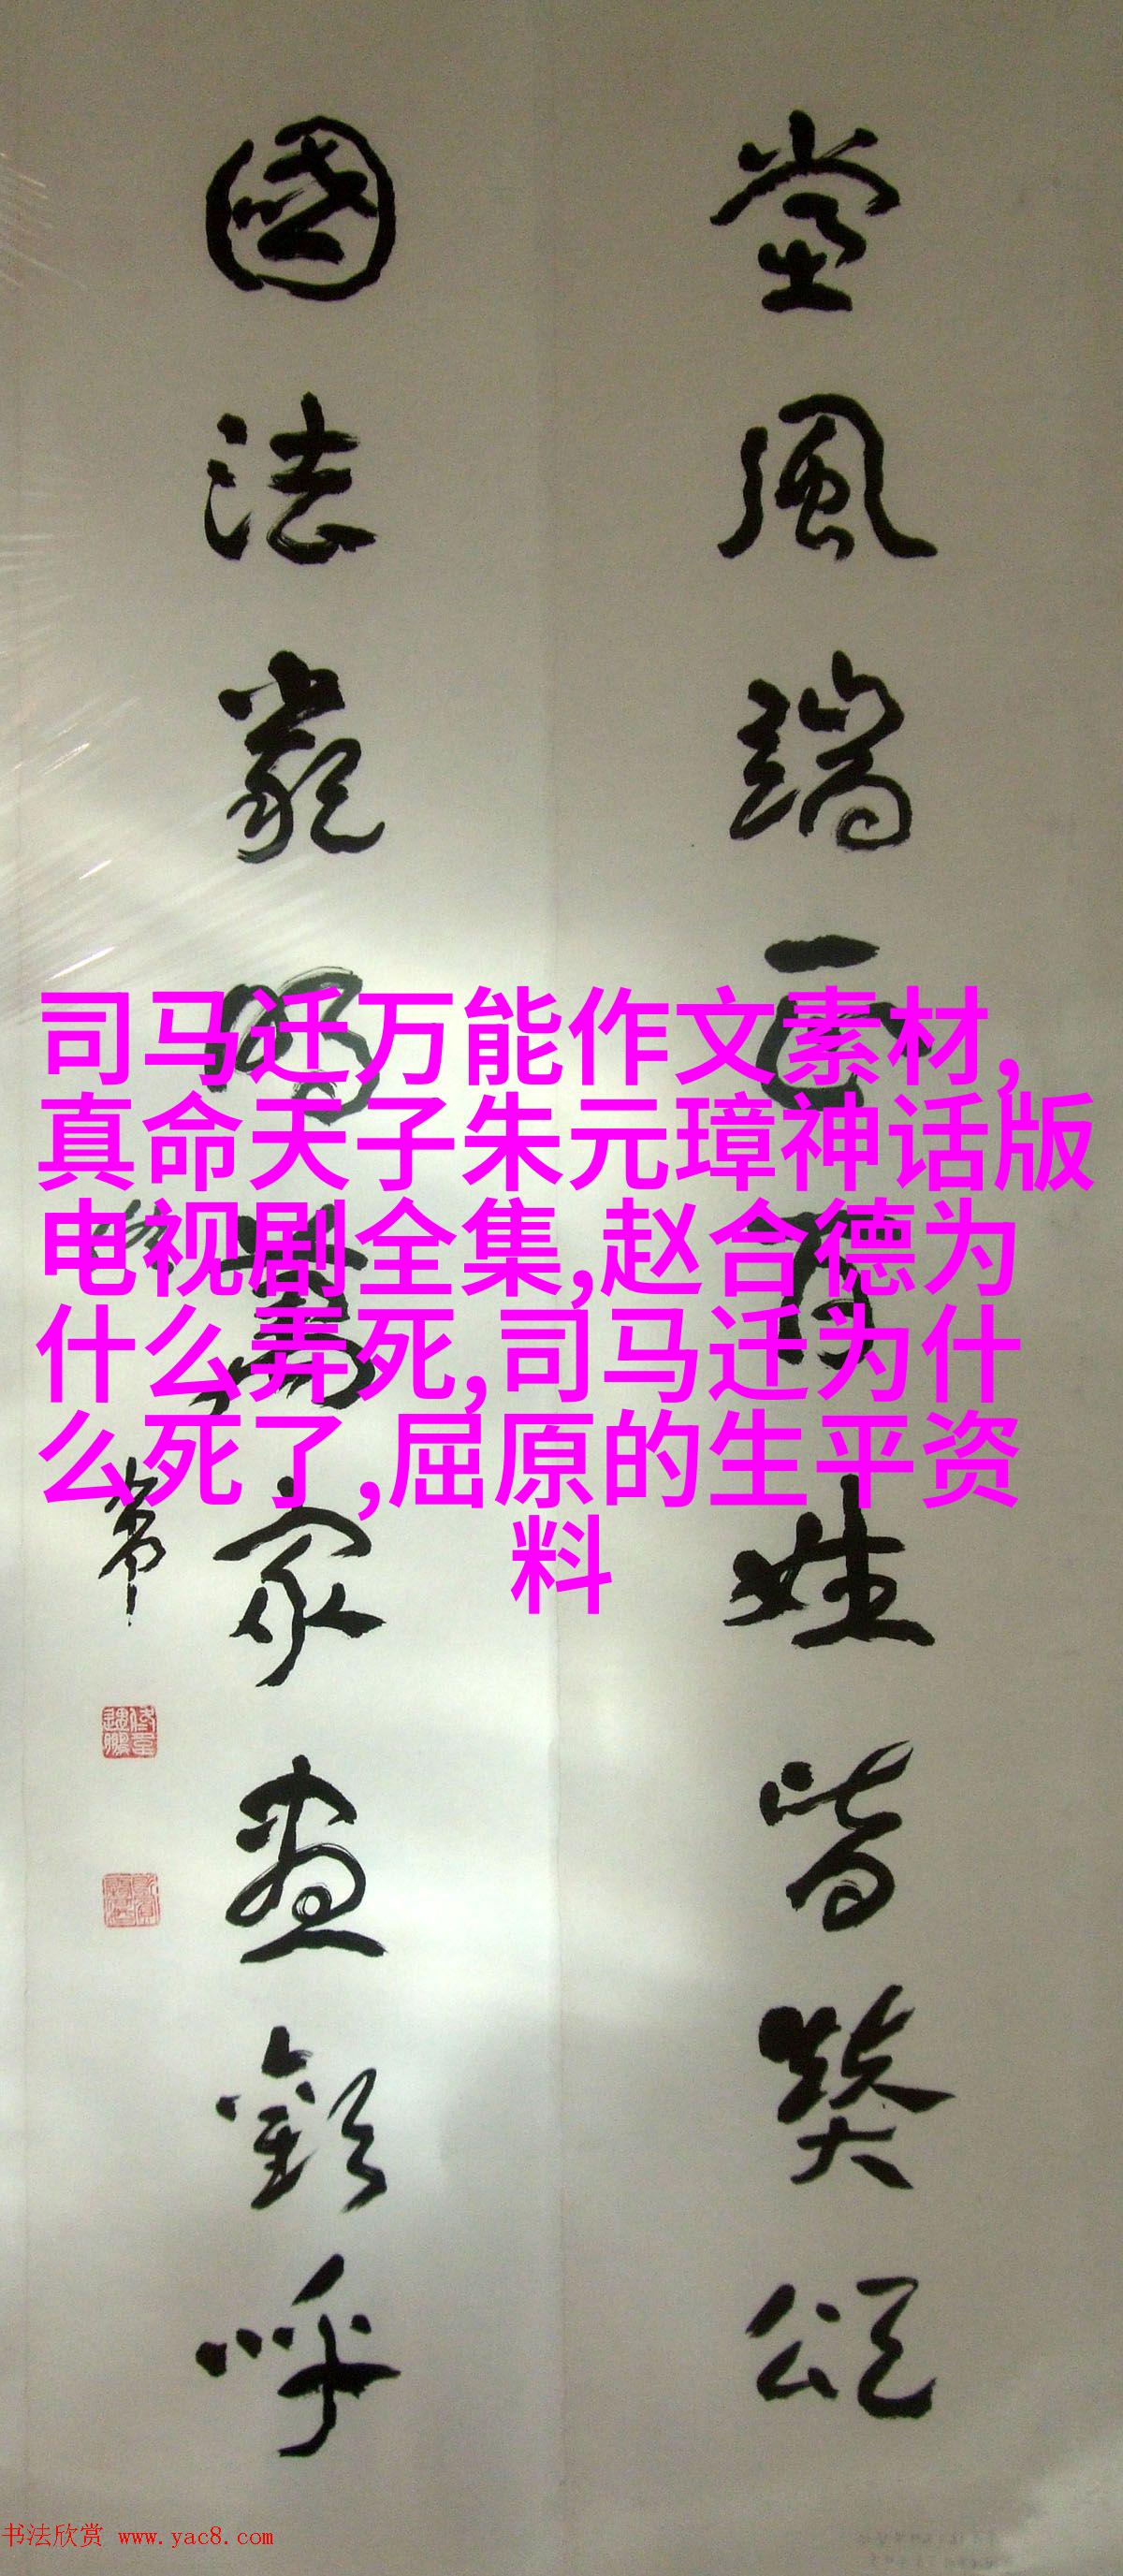 風端正百姓皆頌
國法嚴明萬家盡歡呼
司马迁万能作文素材,
真命天子朱元璋神话版
电视剧全集,赵合德为
什么弄死,司马迁为什
么死了,屈原的生平资
料
书法欣赏 www.yac8.com